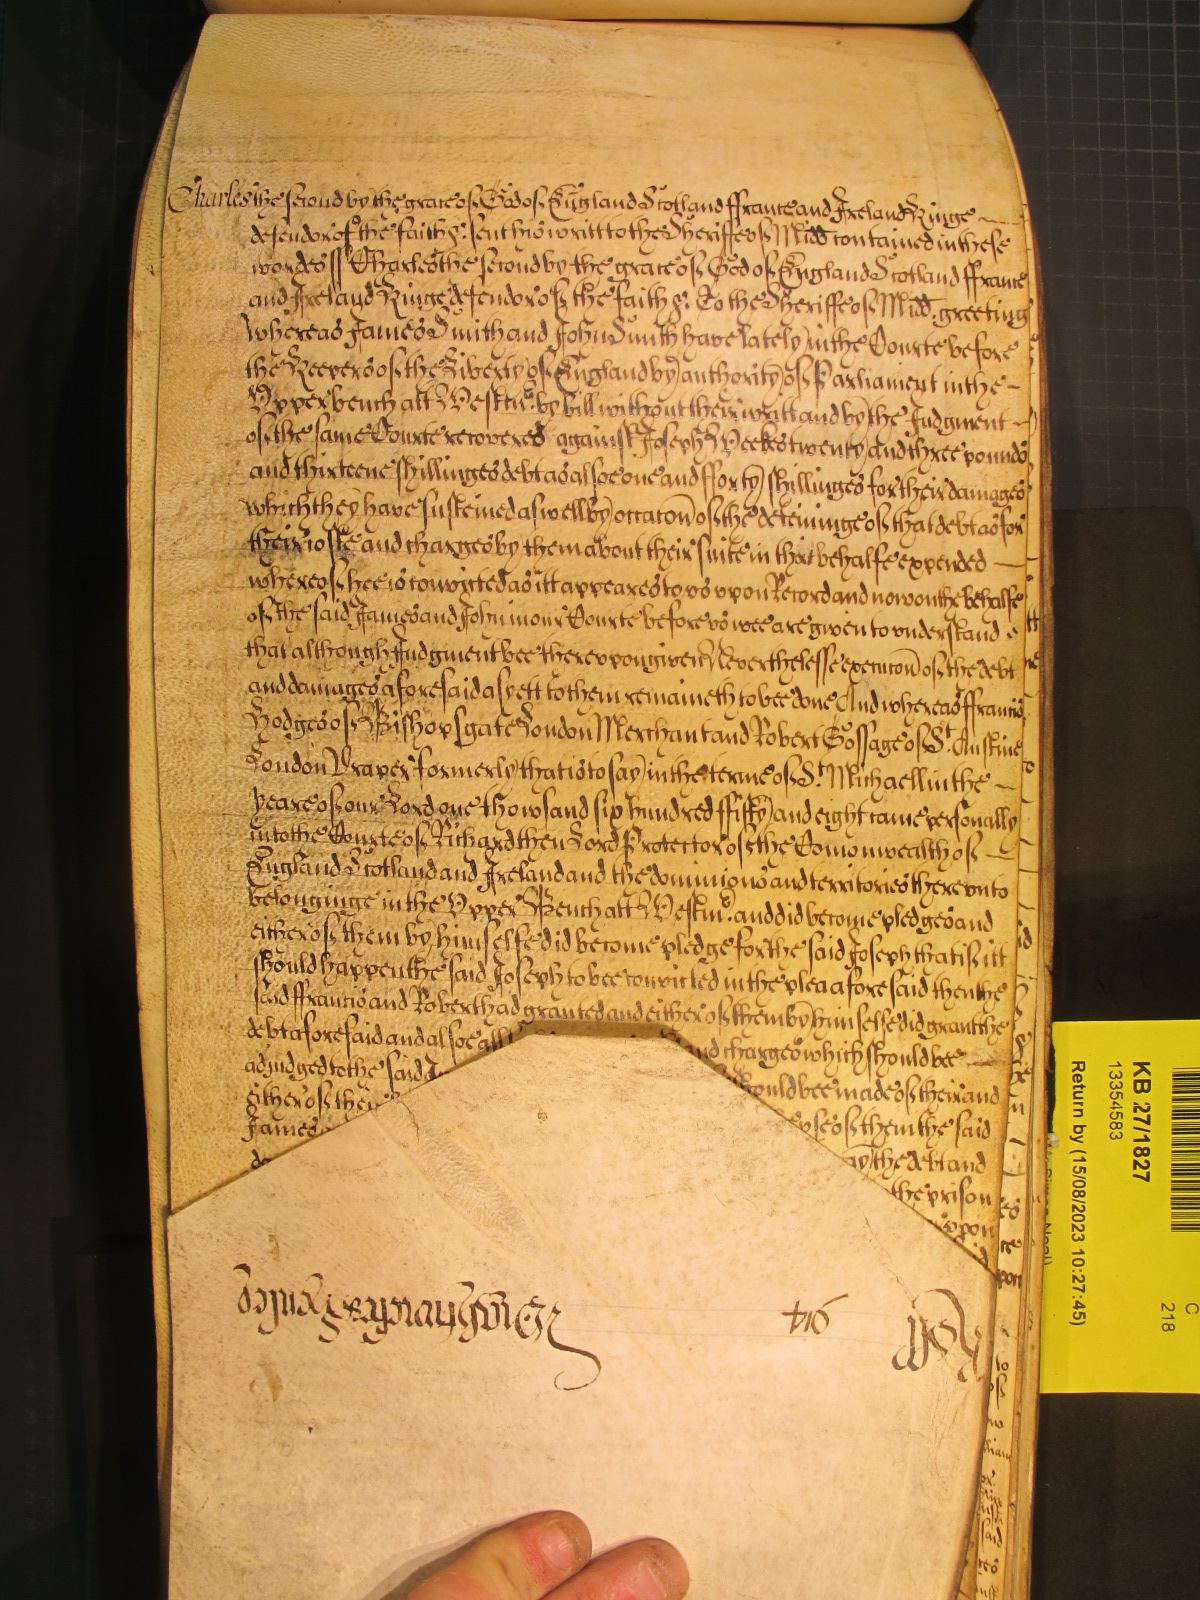 Charles the second by the grace of God of England Scotland ffrance and Ireland Kinge
defendor of the faith &c. sent his writt to the Sheriffe of Midd contained in these
wordes ss Charles the second by the grace of God of England Scotland ffrance
and Ireland Kinge defendor of the faith &c. To the Sheriffe of Midd. greeting
Whereas James Smith and John Smith have lately in the Courte before
the Keepers of the Liberty of England by authority of Parliament in the
Vpper bench att Westmr. by bill without their writt and by the Judgment
of the same Courte recovered against Joseph Weekes twenty and three pounds
and thirteene shillinges debt as alsoe one and fforty shillinges for their damages
which they have susteined aswell by occacon of the deteininge of that debt as for
their coste and charges by them about their suite in this behalfe expended
whereof hee is convicted as itt appeares to vs vpon Record and now on the behalfe
of the said James and John in our Courte before vs wee are given to vnderstand
that although Judgment bee therevpon given Neverthelesse execucon of the debt
and damages aforesaid as yett to them remaineth to bee done And whereas ffrancis
Hodges of Bishopsgate London Merchant and Robert Gossage of St. Austine
London Draper formerly that is to say in the terme of St. Michaell in the
yeare of our Lord one thowsand six hundred ffifty and eight came personally
into the Courte of Richard then Lord Protector of the Comonwealth of
England Scotland and Ireland and the dominions and territories therevnto
belonginge in the Vpper Bench att Westmr. and did become pledges and
either of them by himselfe did become pledge for the said Joseph that if itt
should happen the said Joseph to bee convicted in the plea aforesaid then the
said ffrancis and Robert had granted and either of them by himselfe did grant the
debt aforesaid and alsoe all and charges which should bee
adjudged to the said should bee made of their and
either of them of them the said
James the debt and
the prison
vpon
KB 27/1827
13354583
Return by (15/08/2023 10:27:45)
C
218